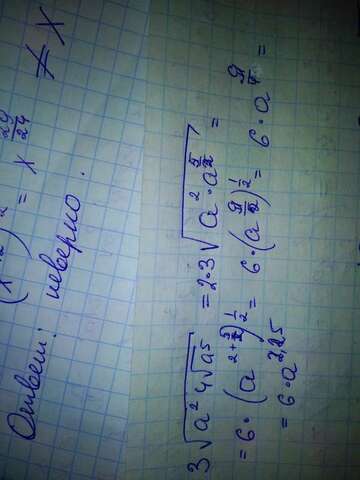 = x^{29/24} ≠ x
Ответ: неверно.
3√(a² 4√a⁵) = 2·3√(a²·a^{5/2}) =
= 6·(a^{2+5/2})^{1/2} = 6·(a^{9/2})^{1/2} = 6·a^{9/4} =
= 6·a^{2,25}